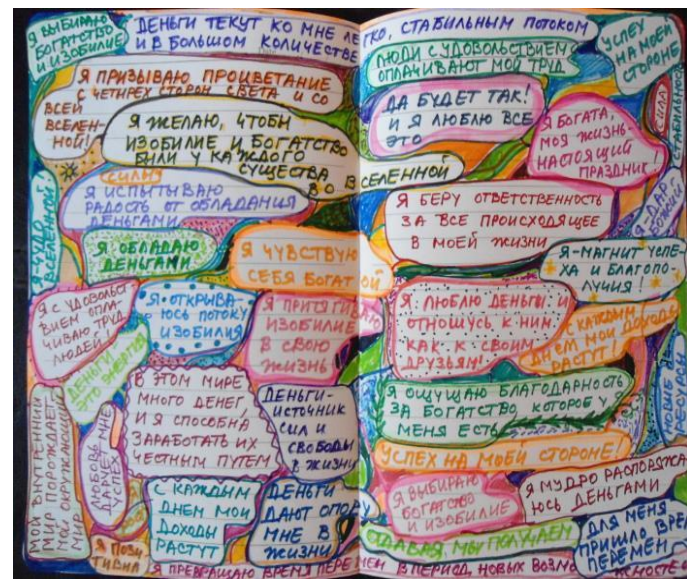 Я ВЫБИРАЮ
БОГАТСТВО
И ИЗОБИЛИЕ
ДЕНЬГИ ТЕКУТ КО МНЕ ЛЕГКО, СТАБИЛЬНЫМ ПОТОКОМ
И В БОЛЬШОМ КОЛИЧЕСТВЕ
ЛЮДИ С УДОВОЛЬСТВИЕМ
ОПЛАЧИВАЮТ МОЙ ТРУД
УСПЕХ
НА МОЕЙ
СТОРОНЕ
Я ПРИЗЫВАЮ ПРОЦВЕТАНИЕ
С ЧЕТЫРЕХ СТОРОН СВЕТА И СО
ВСЕЙ
ВСЕЛЕН-
НОЙ!
Я ЖЕЛАЮ, ЧТОБЫ
ИЗОБИЛИЕ И БОГАТСТВО
БЫЛИ У КАЖДОГО
СУЩЕСТВА
ВО ВСЕЛЕННОЙ
ДА БУДЕТ ТАК!
И Я ЛЮБЛЮ ВСЕ
ЭТО
СИЛА
СТАБИЛЬНОСТЬ
Я БОГАТА,
МОЯ ЖИЗНЬ-
НАСТОЯЩИЙ
ПРАЗДНИК!
Я ИСПЫТЫВАЮ
РАДОСТЬ ОТ ОБЛАДАНИЯ
ДЕНЬГАМИ
Я БЕРУ ОТВЕТСТВЕННОСТЬ
ЗА ВСЕ ПРОИСХОДЯЩЕЕ
В МОЕЙ ЖИЗНИ
Я-ДАР
БОЖИЙ
Я-ЧУДО
ВСЕЛЕННОЙ!
Я ОБЛАДАЮ
ДЕНЬГАМИ
Я ЧУВСТВУЮ
СЕБЯ БОГАТОЙ
Я-МАГНИТ УСПЕ-
ХА И БЛАГОПО-
ЛУЧИЯ!
Я С УДОВОЛЬСТ
ВИЕМ ОПЛА-
ЧИВАЮ ТРУД
ЛЮДЕЙ
Я ОТКРЫВА-
ЮСЬ ПОТОКУ
ИЗОБИЛИЯ
Я ПРИТЯГИВАЮ
ИЗОБИЛИЕ
В СВОЮ
ЖИЗНЬ
Я ЛЮБЛЮ ДЕНЬГИ И
ОТНОШУСЬ К НИМ,
КАК К СВОИМ
ДРУЗЬЯМ!
С КАЖДЫМ
ДНЕМ МОИ ДОХОДЫ
РАСТУТ!
ДЕНЬГИ
ЭТО ЭНЕРГИЯ
В ЭТОМ МИРЕ
МНОГО ДЕНЕГ,
И Я СПОСОБНА
ЗАРАБОТАТЬ ИХ
ЧЕСТНЫМ ПУТЕМ
ДЕНЬГИ-
ИСТОЧНИК
СИЛ И
СВОБОДЫ
В ЖИЗНИ
Я ОЩУЩАЮ БЛАГОДАРНОСТЬ
ЗА БОГАТСТВО, КОТОРОЕ У
МЕНЯ ЕСТЬ
НОВЫЕ
РЕСУРСЫ
МОЙ ВНУТРЕННИЙ
МИР ПОРОЖДАЕТ
МОЙ ОКРУЖАЮЩИЙ
МИР
ЛЮБОВЬ
ДАЕТ МНЕ
УСПЕХ
УСПЕХ НА МОЕЙ СТОРОНЕ!
С КАЖДЫМ
ДНЕМ МОИ
ДОХОДЫ
РАСТУТ
ДЕНЬГИ
ДАЮТ ОПОРУ
МНЕ В
ЖИЗНИ
Я ВЫБИРАЮ
БОГАТСТВО
И ИЗОБИЛИЕ
Я МУДРО РАСПОРЯЖА
ЮСЬ ДЕНЬГАМИ
Я ПОЗИ
ТИВНА
ОТДАВАЯ, МЫ ПОЛУЧАЕМ
ДЛЯ МЕНЯ
ПРИШЛО ВРЕМЯ
ПЕРЕМЕН
Я ПРЕВРАЩАЮ ВРЕМЯ ПЕРЕМЕН В ПЕРИОД НОВЫХ ВОЗМОЖНОСТЕЙ